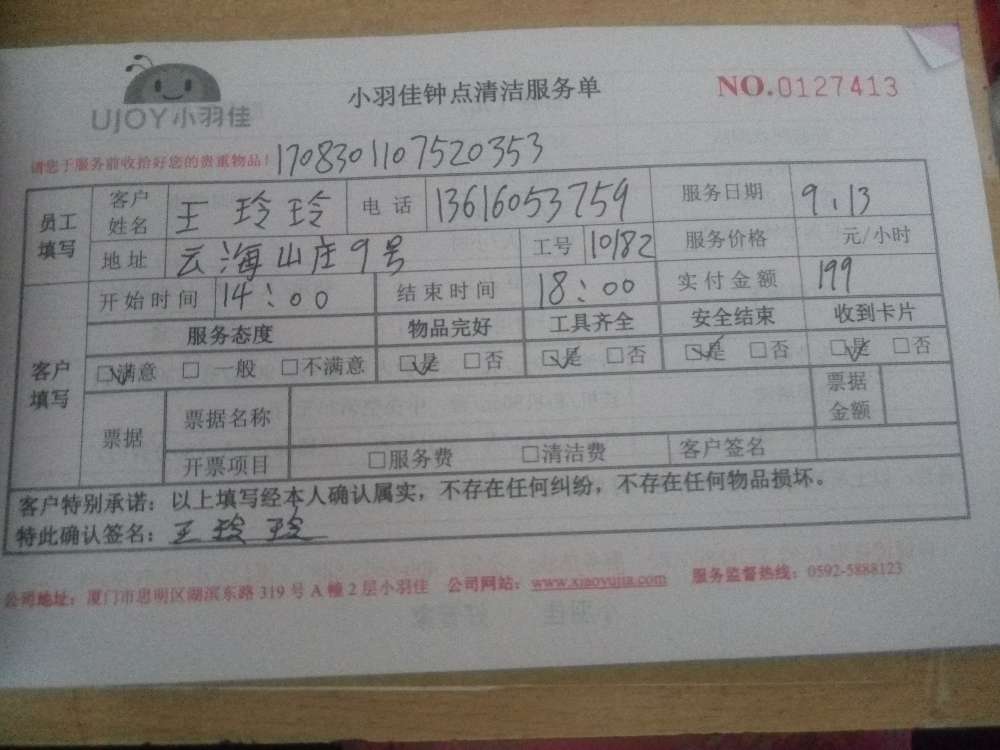 UJOY小羽佳
小羽佳钟点清洁服务单
NO.0127413
请您于服务前收拾好您的贵重物品！ 1708301107520353
员工填写 客户姓名 王玲玲 电话 13616053759 服务日期 9.13
地址 云海山庄9号 工号 10182 服务价格 元/小时
客户填写 开始时间 14:00 结束时间 18:00 实付金额 199
服务态度 物品完好 工具齐全 安全结束 收到卡片
☑满意 □一般 □不满意 ☑是 □否 ☑是 □否 ☑是 □否 ☑是 □否
票据 票据名称 票据金额
开票项目 □服务费 □清洁费 客户签名
客户特别承诺：以上填写经本人确认属实，不存在任何纠纷，不存在任何物品损坏。
特此确认签名：王玲玲
公司地址：厦门市思明区湖滨东路319号A幢2层小羽佳 公司网站：www.xiaoyujia.com 服务监督热线：0592-5888123